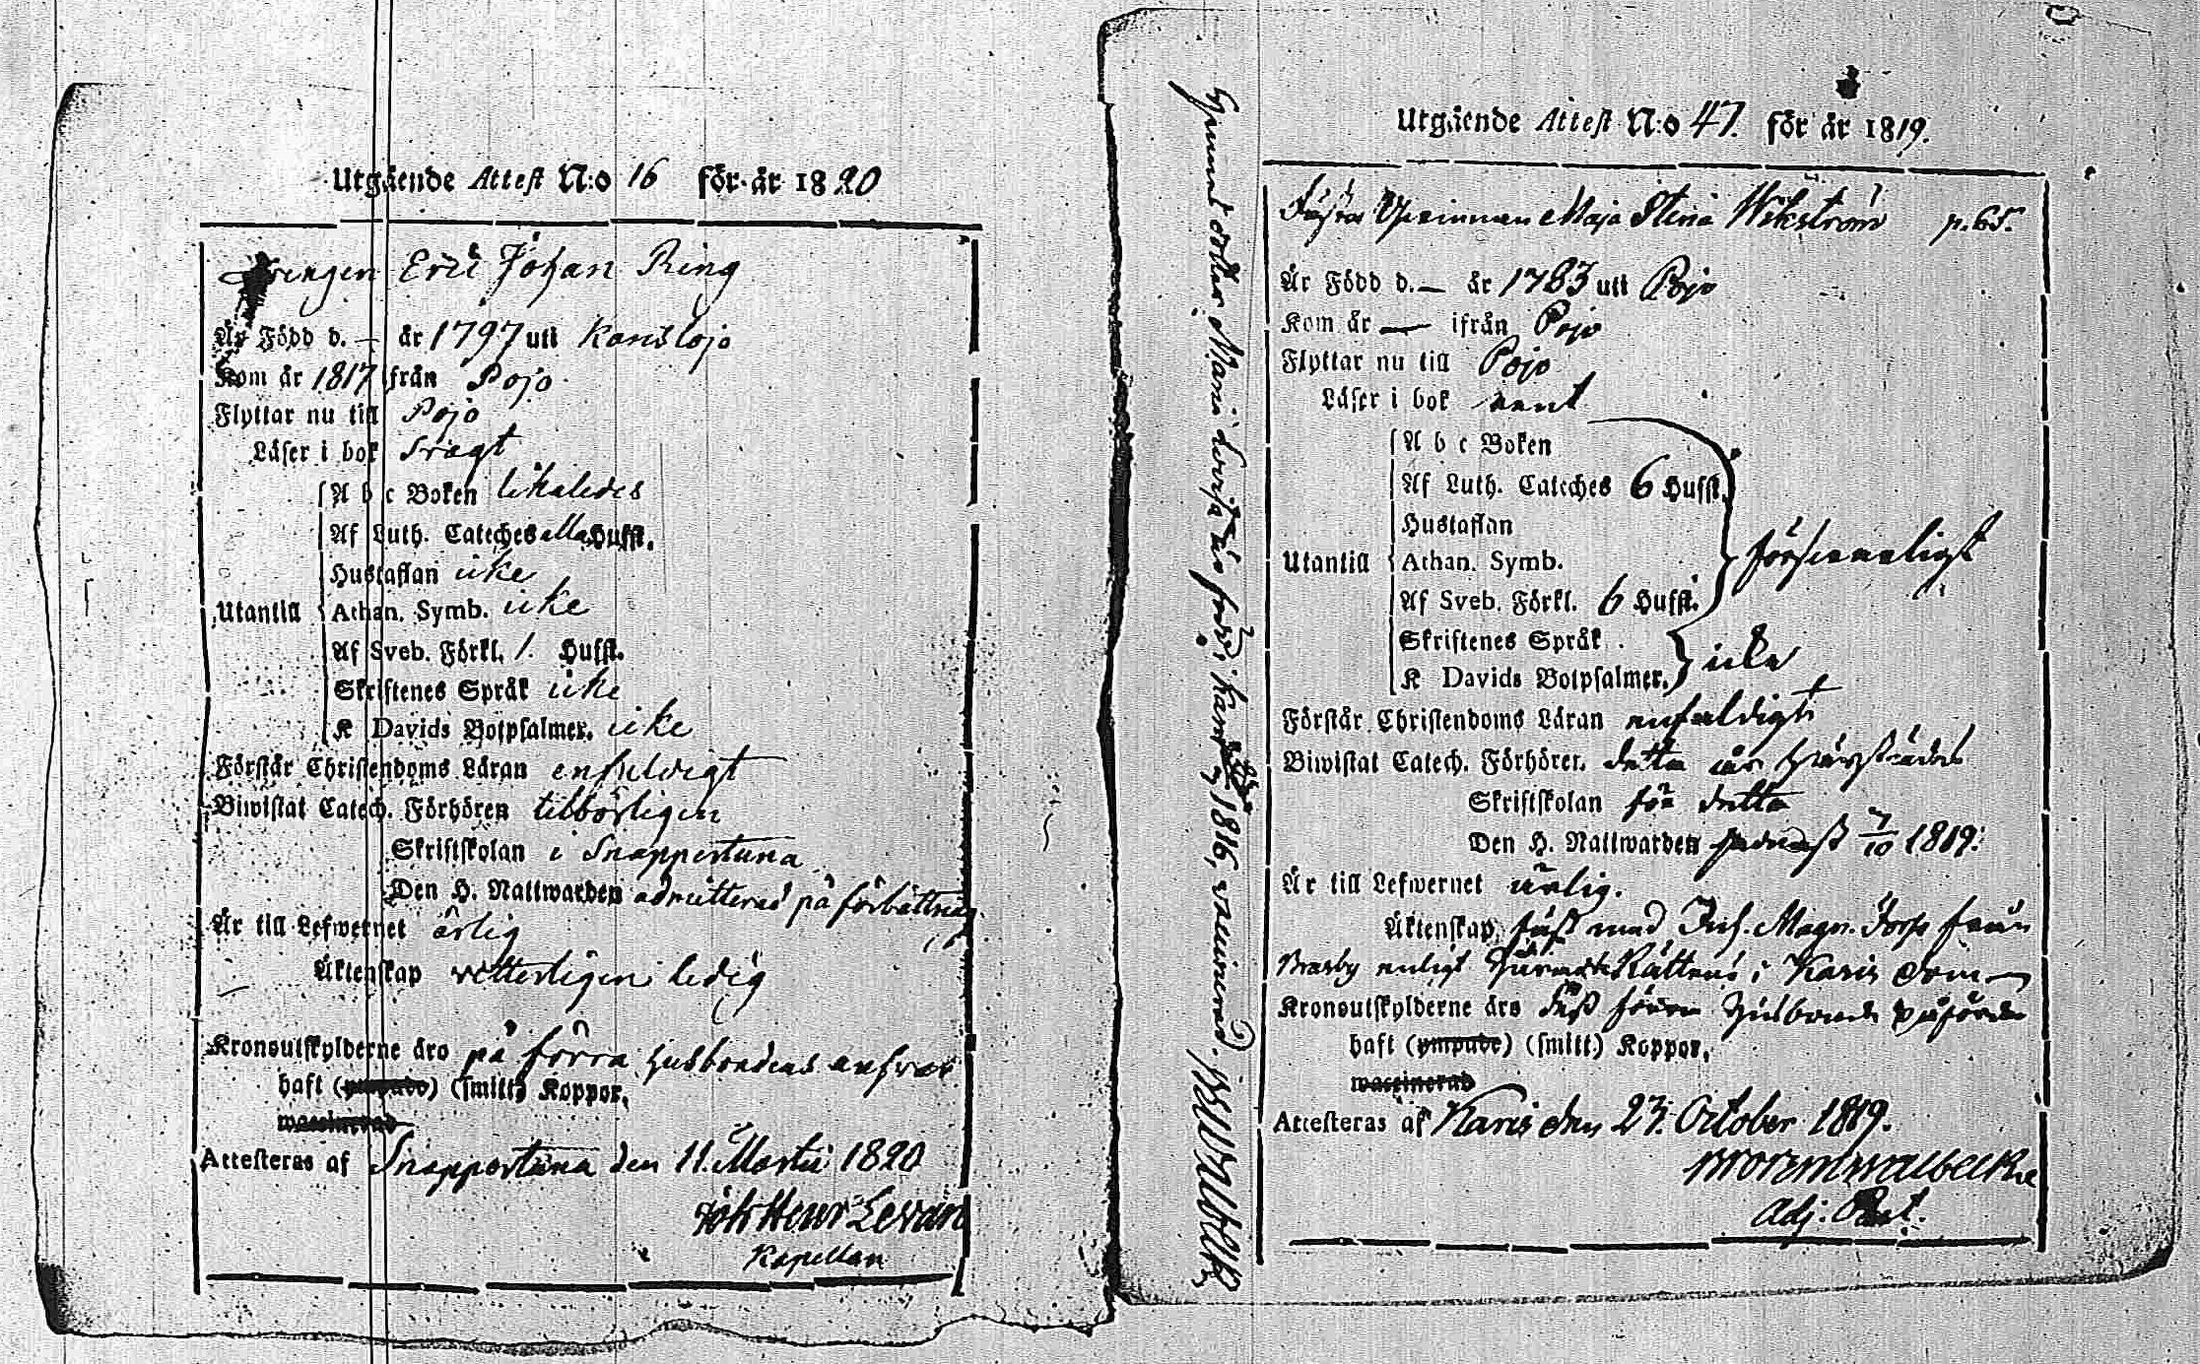 Utgående Attest N:o 16 för år 1820
Drengen Eric Johan Ring
Är Född d. — år 1797 uti Karislojo
Kom år 1817 ifrån Pojo
Flyttar nu till Pojo
Läser i bok svagt
A b c Boken likaledes
Af Luth. Cateches alla Hufst.
Hustaflan icke
Utantill Athan. Symb. icke
Af Sveb. Förkl. 1. Hufst.
Skriftenes Språk icke
K Davids Botpsalmer. icke
Förstår Christendoms Läran enfaldigt
Biwistat Catech. Förhören tilbörligen
Skriftskolan i Snappertuna
Den H. Nattwarden admitterad på förbättring
Är till Lefwernet ärlig
Äktenskap vetterligen ledig
Kronoutskylderne äro på förra Husbondens ansvar
haft (ympade) (smitt.) Koppor.
waccinerad
Attesteras af Snappertuna den 11. Martii 1820
Joh Henr Levan
Kapellan
dotter Maria Lovisa är född i Karis 1816, vaccinerad.
Utgående Attest N:o 47. för år 1819.
Maja Stina Wikström p. 65.
Är Född d. — år 1783 uti Pojo
Kom år — ifrån Pojo
Flyttar nu till Pojo
Läser i bok rent
A b c Boken
Af Luth. Cateches 6 Hufst.
Hustaflan
Utantill Athan. Symb. försvarligt
Af Sveb. Förkl. 6 Hufst.
Skriftenes Språk .
K Davids Botpsalmer. icke
Förstår Christendoms Läran enfaldigt
Biwistat Catech. Förhörer. detta år härstädes
Skriftskolan för detta
Den H. Nattwarden sednast 7/10 1819.
Är till Lefwernet ärlig.
Äktenskap, fäst med Inh. Magn. från
enligt Rättens i Karis dom
Kronoutskylderne äro förra Husbonde påförde
haft (ympade) (smitt.) Koppor.
waccinerad
Attesteras af Karis den 23. October 1819.
Adj. Past.